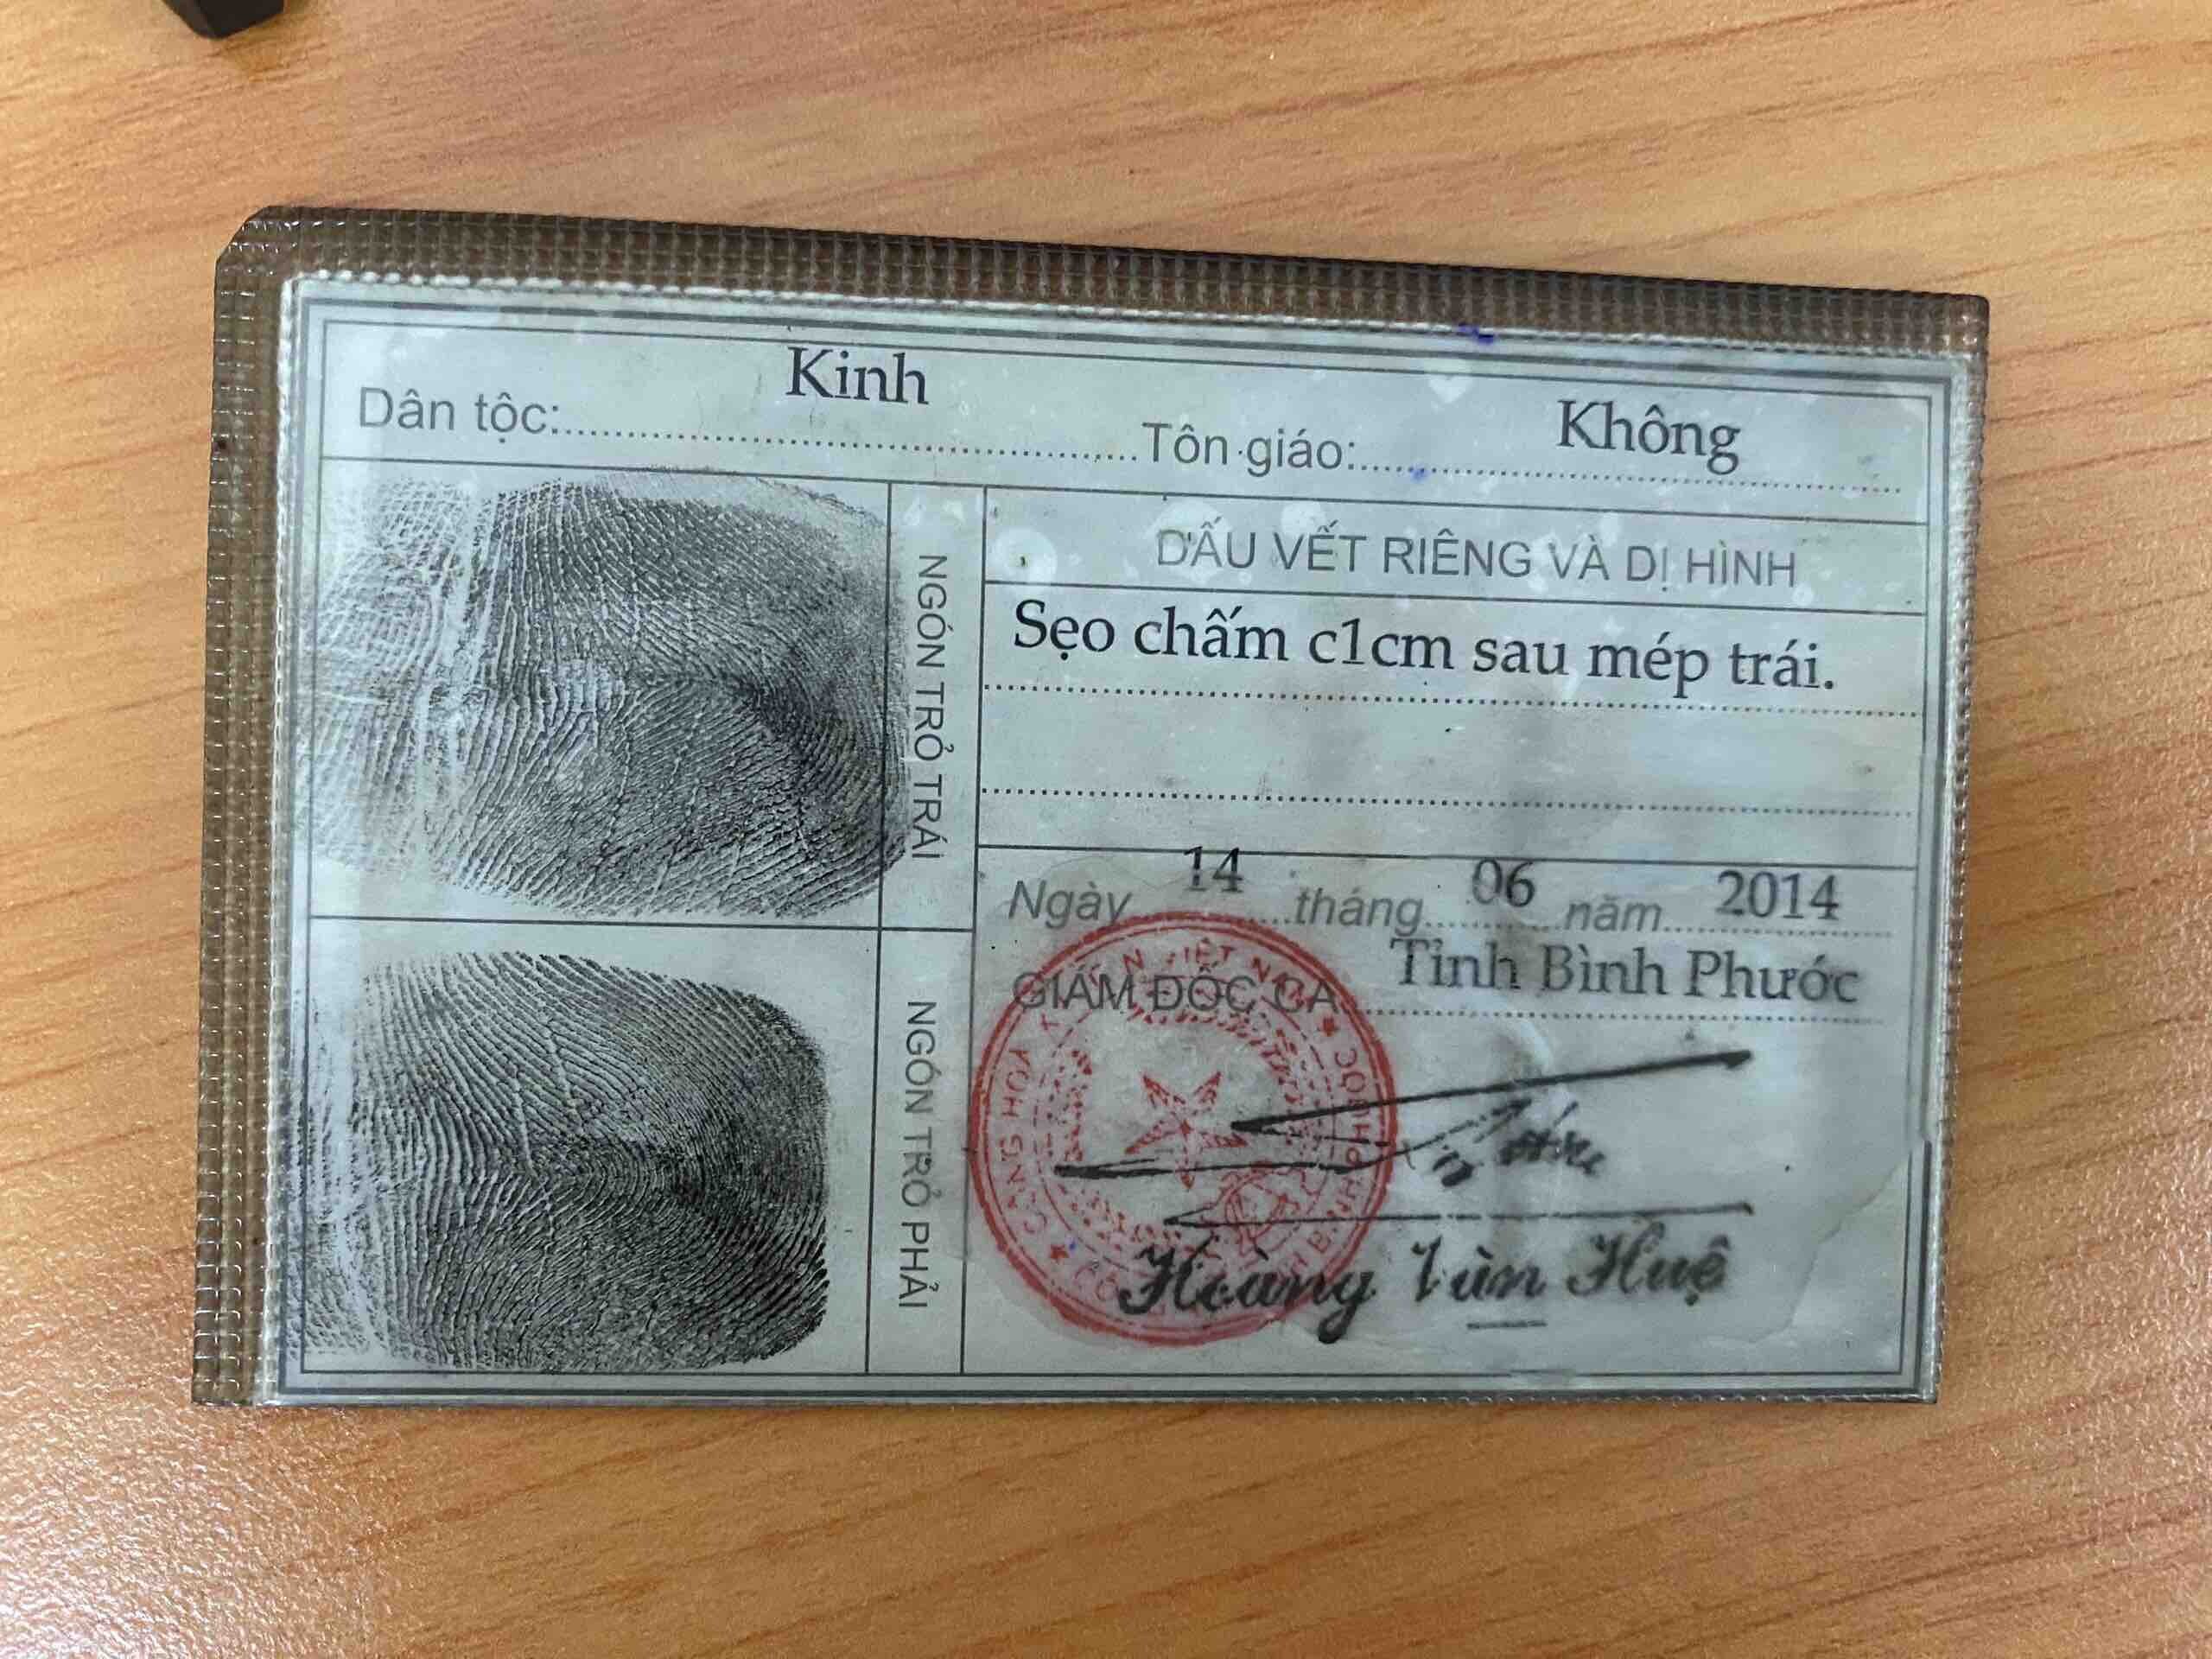 Dân tộc: Kinh Tôn giáo: Không
NGÓN TRỎ TRÁI
DẤU VẾT RIÊNG VÀ DỊ HÌNH
Sẹo chấm c1cm sau mép trái.
Ngày 14 tháng 06 năm 2014
GIÁM ĐỐC CA Tỉnh Bình Phước
NGÓN TRỎ PHẢI
Hoàng Văn Huệ